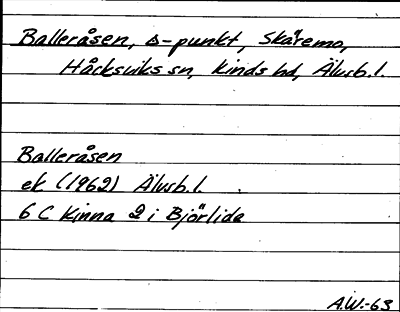 Balleråsen, △-punkt, Skåremo,
Håcksviks sn, Kinds hd, Älvsb. l.
Balleråsen
ek (1962) Älvsb. l.
6 C Kinna 2 i Björlida
A.W.-63